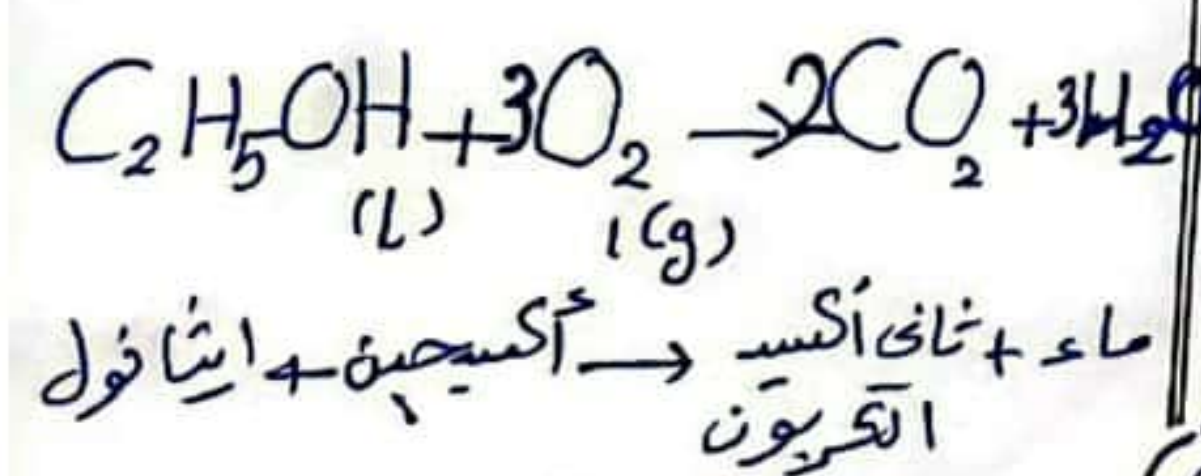 C₂H₅OH + 3O₂ → 2CO₂ + 3H₂O
(L) (g)
ايثانول + أكسيجين → ثانى أكسيد + ماء
الكربون